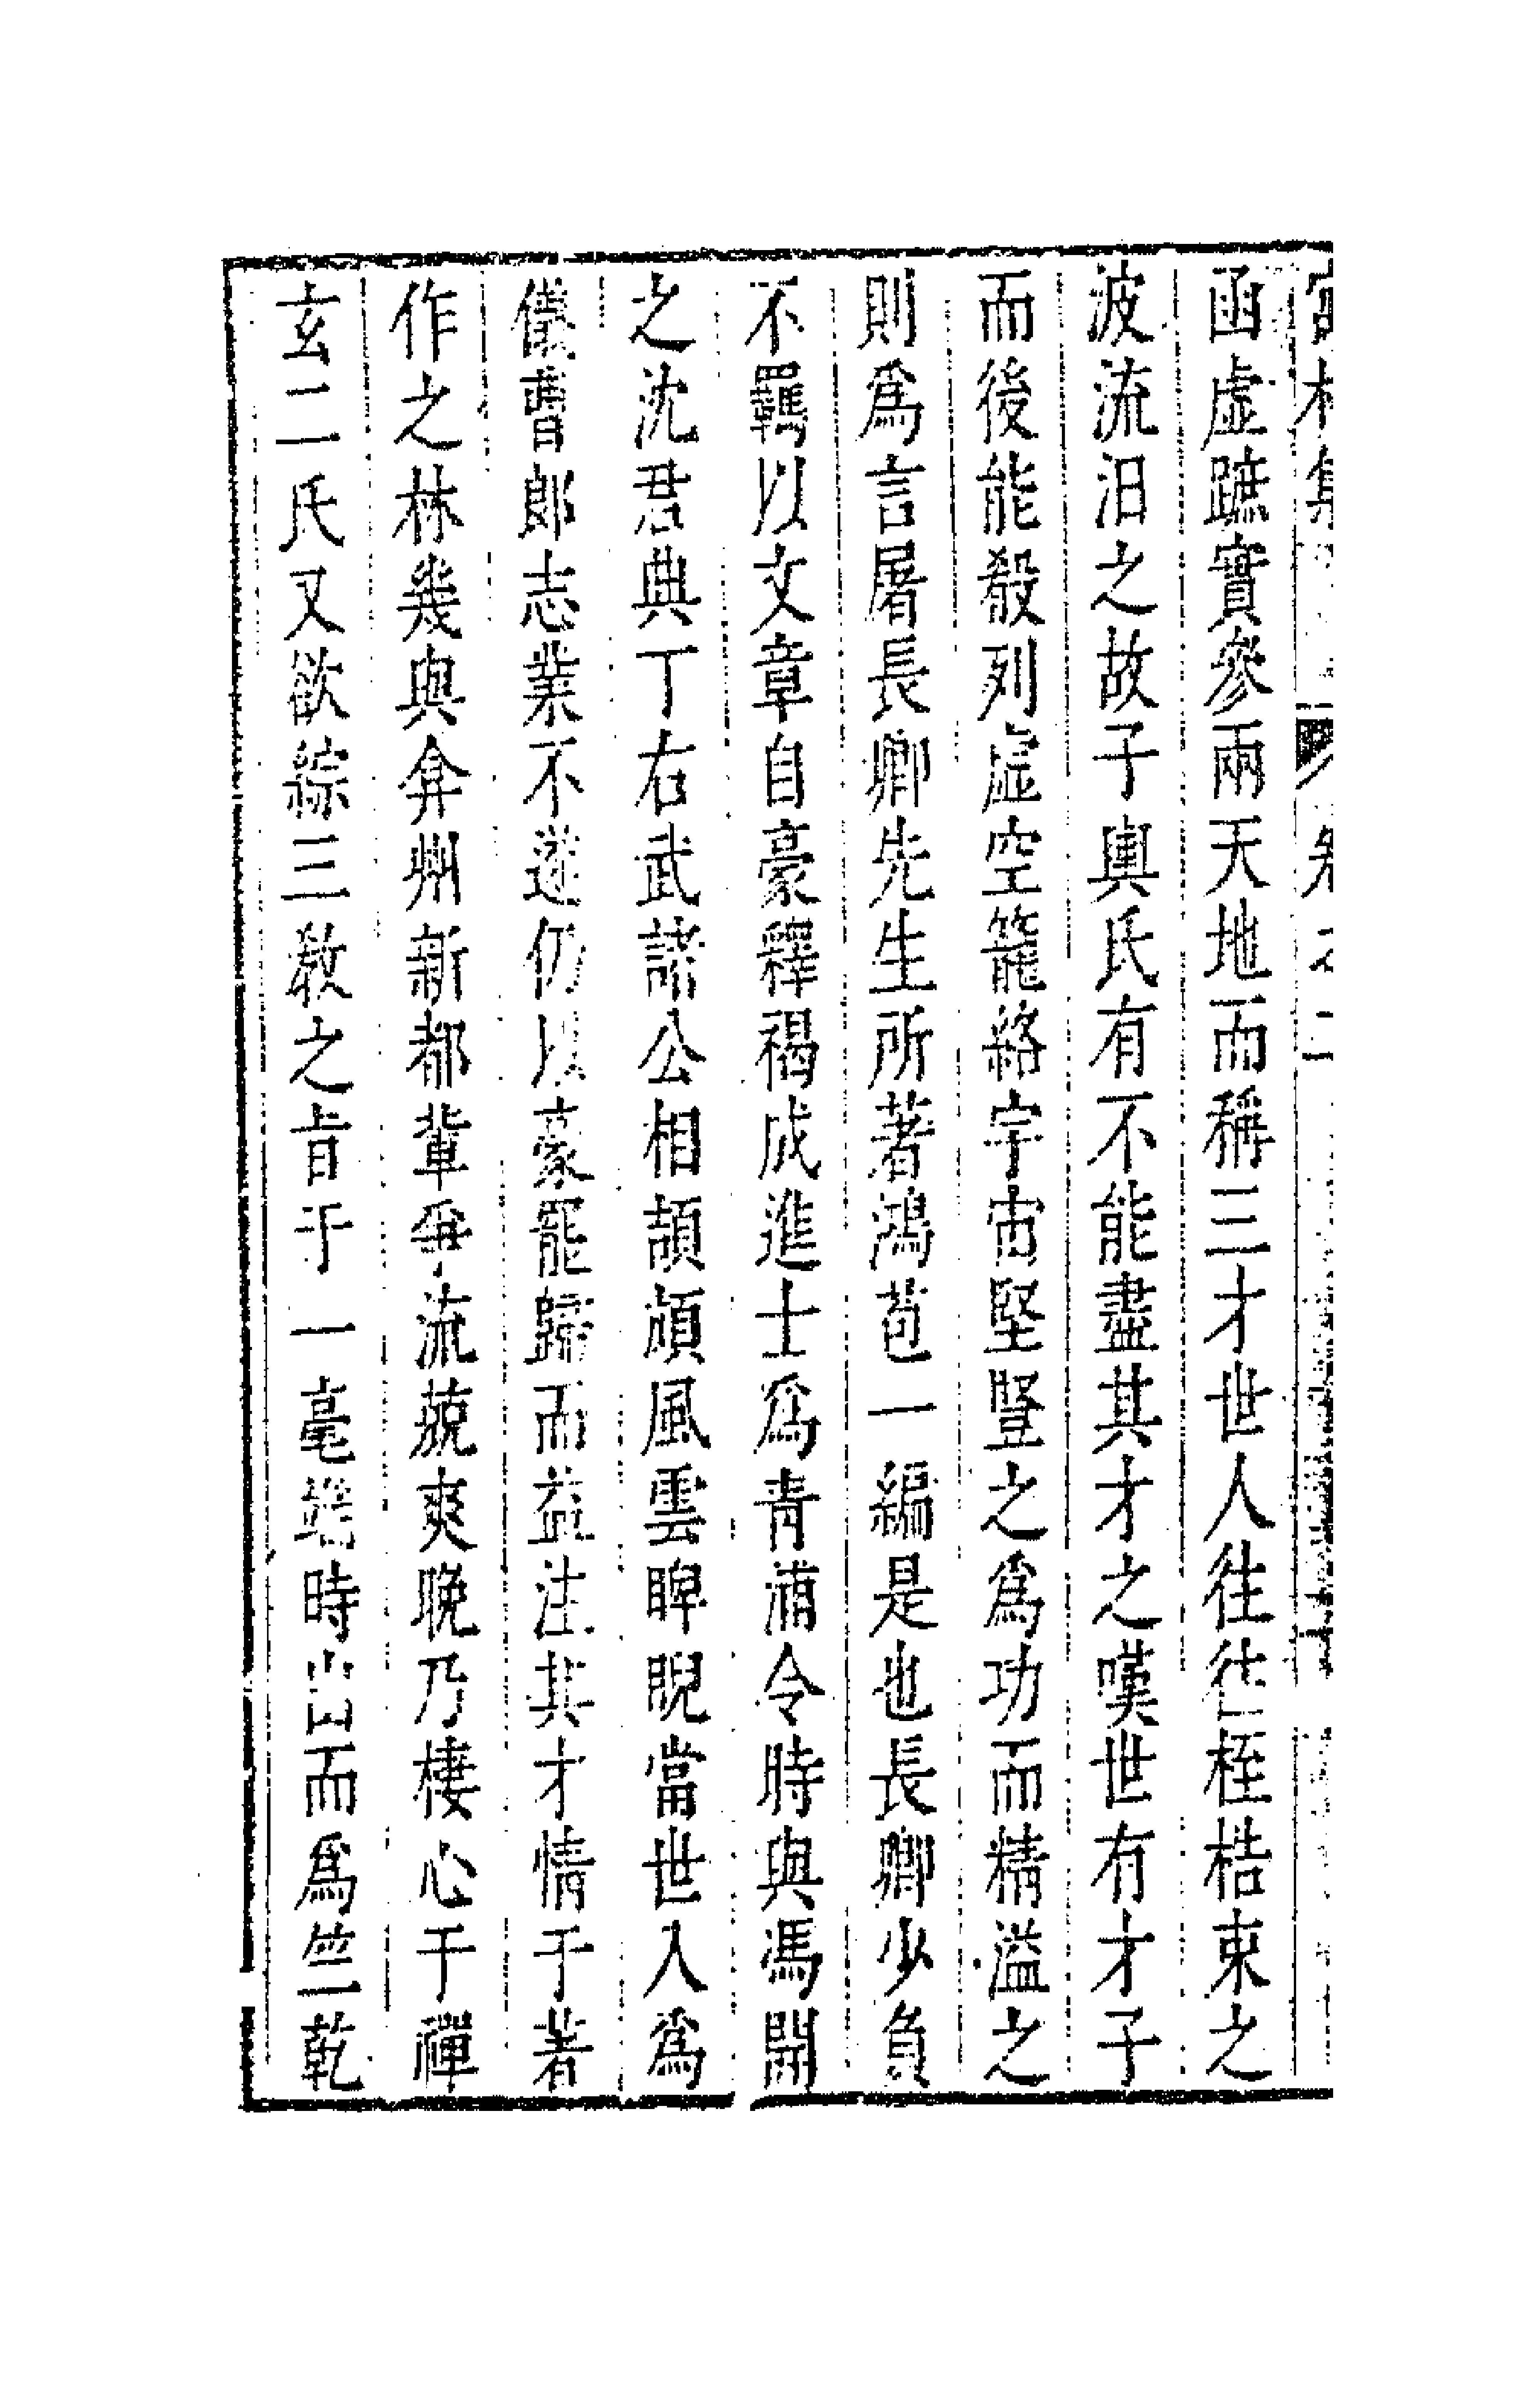 集 卷之二
函虛蹠實參兩天地而稱三才世人往往桎梏束之
波流汨之故子輿氏有不能盡其才之嘆世有才子
而後能殽列虛空籠絡宇宙堅豎之爲功而精溢之
則爲言屠長卿先生所著鴻苞一編是也長卿少負
不羈以文章自豪釋褐成進士爲青浦令時與馮開
之沈君典丁右武諸公相頡頏風雲睥睨當世入爲
儀曹郎志業不遂仍以豪罷歸而益注其才情于著
作之林幾與弇州新都輩爭流藐爽晚乃棲心于禪
玄二氏又欲綜三敎之旨于一毫端時出而爲竺乾